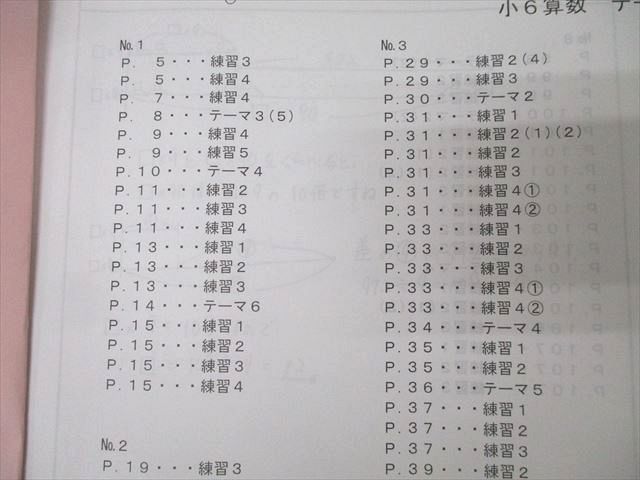 小６算数　テー
№1
P.　5・・・練習3
P.　5・・・練習4
P.　7・・・練習4
P.　8・・・テーマ3(5)
P.　9・・・練習4
P.　9・・・練習5
P.10・・・テーマ4
P.11・・・練習2
P.11・・・練習3
P.11・・・練習4
P.13・・・練習1
P.13・・・練習2
P.13・・・練習3
P.14・・・テーマ6
P.15・・・練習1
P.15・・・練習2
P.15・・・練習3
P.15・・・練習4
№2
P.19・・・練習3
№3
P.29・・・練習2(4)
P.29・・・練習3
P.30・・・テーマ2
P.31・・・練習1
P.31・・・練習2(1)(2)
P.31・・・練習2
P.31・・・練習3
P.31・・・練習4①
P.31・・・練習4②
P.33・・・練習1
P.33・・・練習2
P.33・・・練習3
P.33・・・練習4①
P.33・・・練習4②
P.34・・・テーマ4
P.35・・・練習1
P.35・・・練習2
P.36・・・テーマ5
P.37・・・練習1
P.37・・・練習2
P.37・・・練習3
P.39・・・練習2